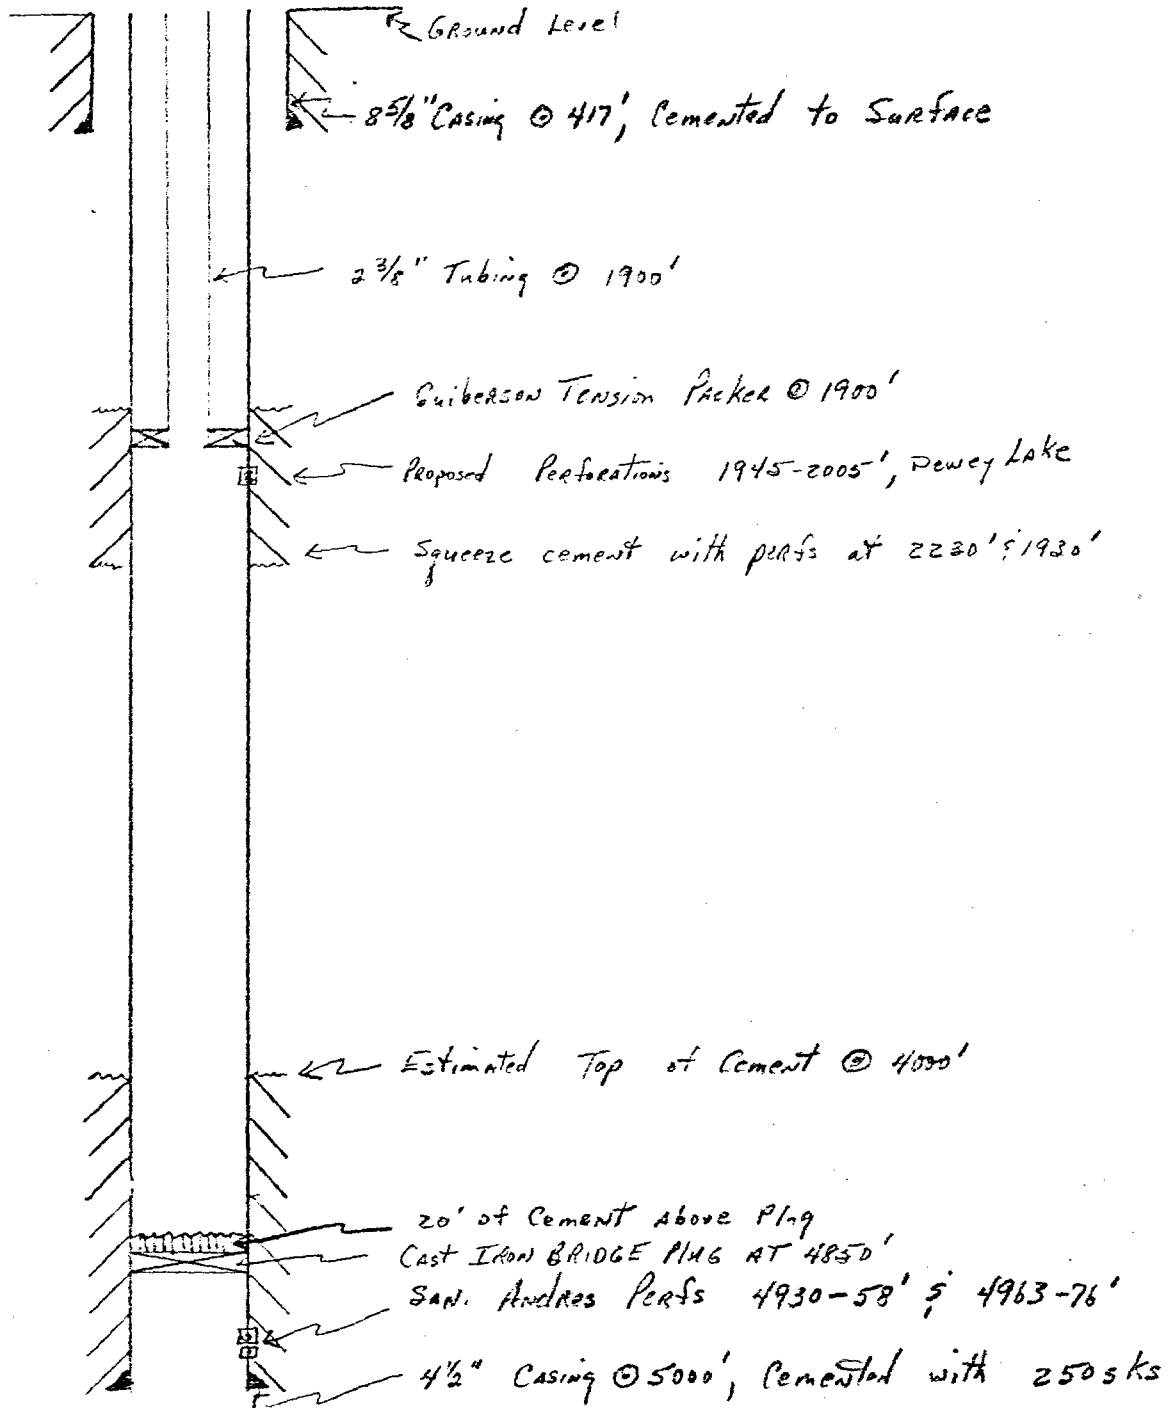 Ground Level
8 5/8" Casing @ 417', Cemented to Surface
2 3/8" Tubing @ 1900'
Guiberson Tension Packer @ 1900'
Proposed Perforations 1945-2005', Dewey Lake
Squeeze cement with perfs at 2230' & 1930'
Estimated Top of Cement @ 4000'
20' of Cement Above Plug
Cast Iron BRIDGE Plug AT 4850'
San. Andres Perfs 4930-58' & 4963-76'
4 1/2" Casing @ 5000', Cemented with 250 sks